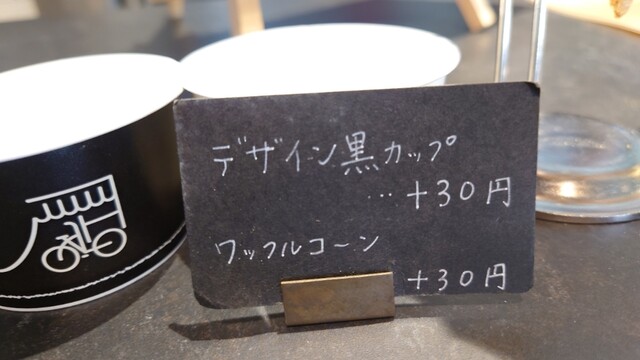 デザイン黒カップ
…+30円
ワッフルコーン
+30円